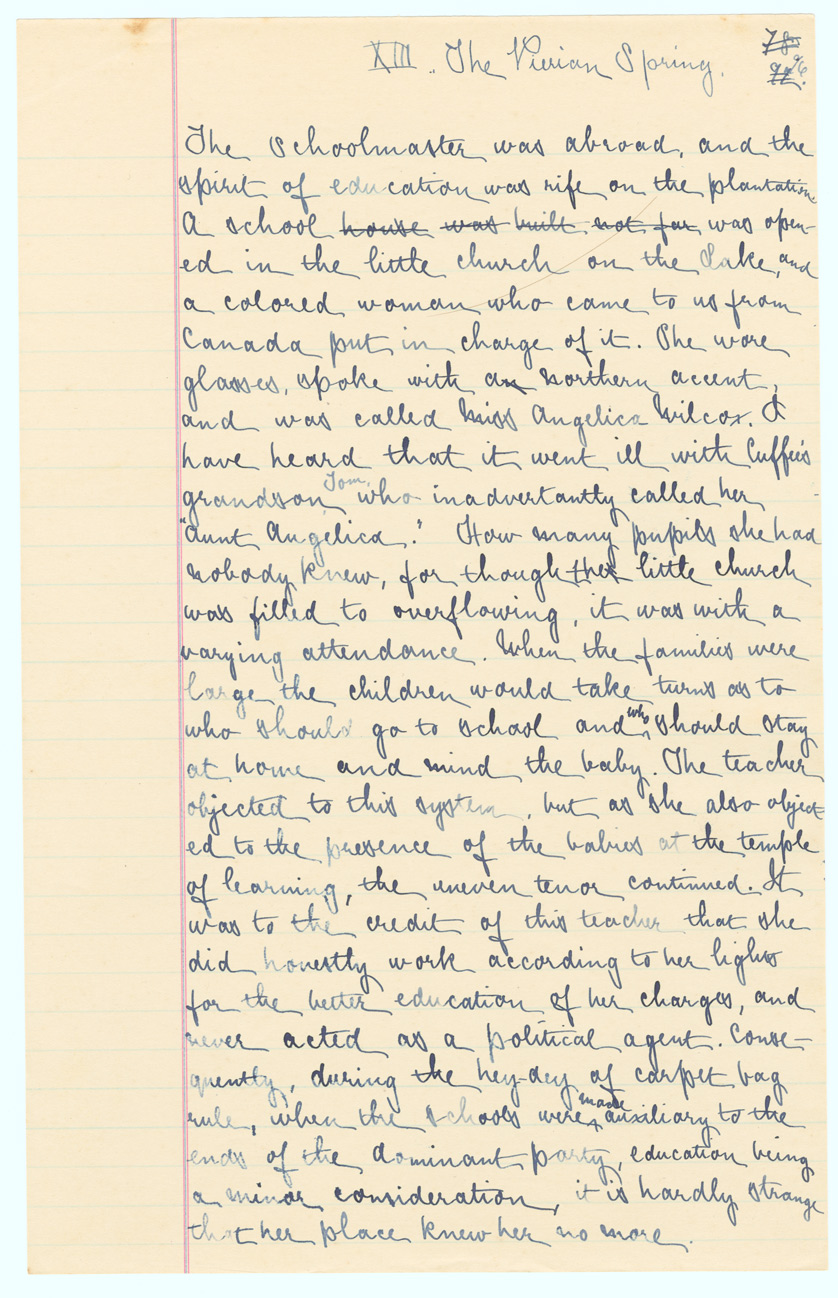 XIII. The Vivian Spring.
78
97 96.
The schoolmaster was abroad, and the
spirit of education was rife on the plantation.
A school house was built not far was open-
ed in the little church on the Lake, and
a colored woman who came to us from
Canada put in charge of it. She wore
glasses, spoke with an northern accent,
and was called Miss Angelica Wilcox. I
have heard that it went ill with Cuffee's
grandson, Tom, who inadvertantly called her
"Aunt Angelica." How many pupils she had
nobody knew, for though the little church
was filled to overflowing, it was with a
varying attendance. When the families were
large the children would take turns as to
who should go to school and who should stay
at home and mind the baby. The teacher
objected to this system, but as she also object-
ed to the presence of the babies at the temple
of learning, the uneven tenor continued. It
was to the credit of this teacher that she
did honestly work according to her lights
for the better education of her charges, and
never acted as a political agent. Conse-
quently, during the hey-dey of carpet bag
rule, when the schools were made auxiliary to the
ends of the dominant party, education being
a minor consideration, it is hardly strange
that her place knew her no more.